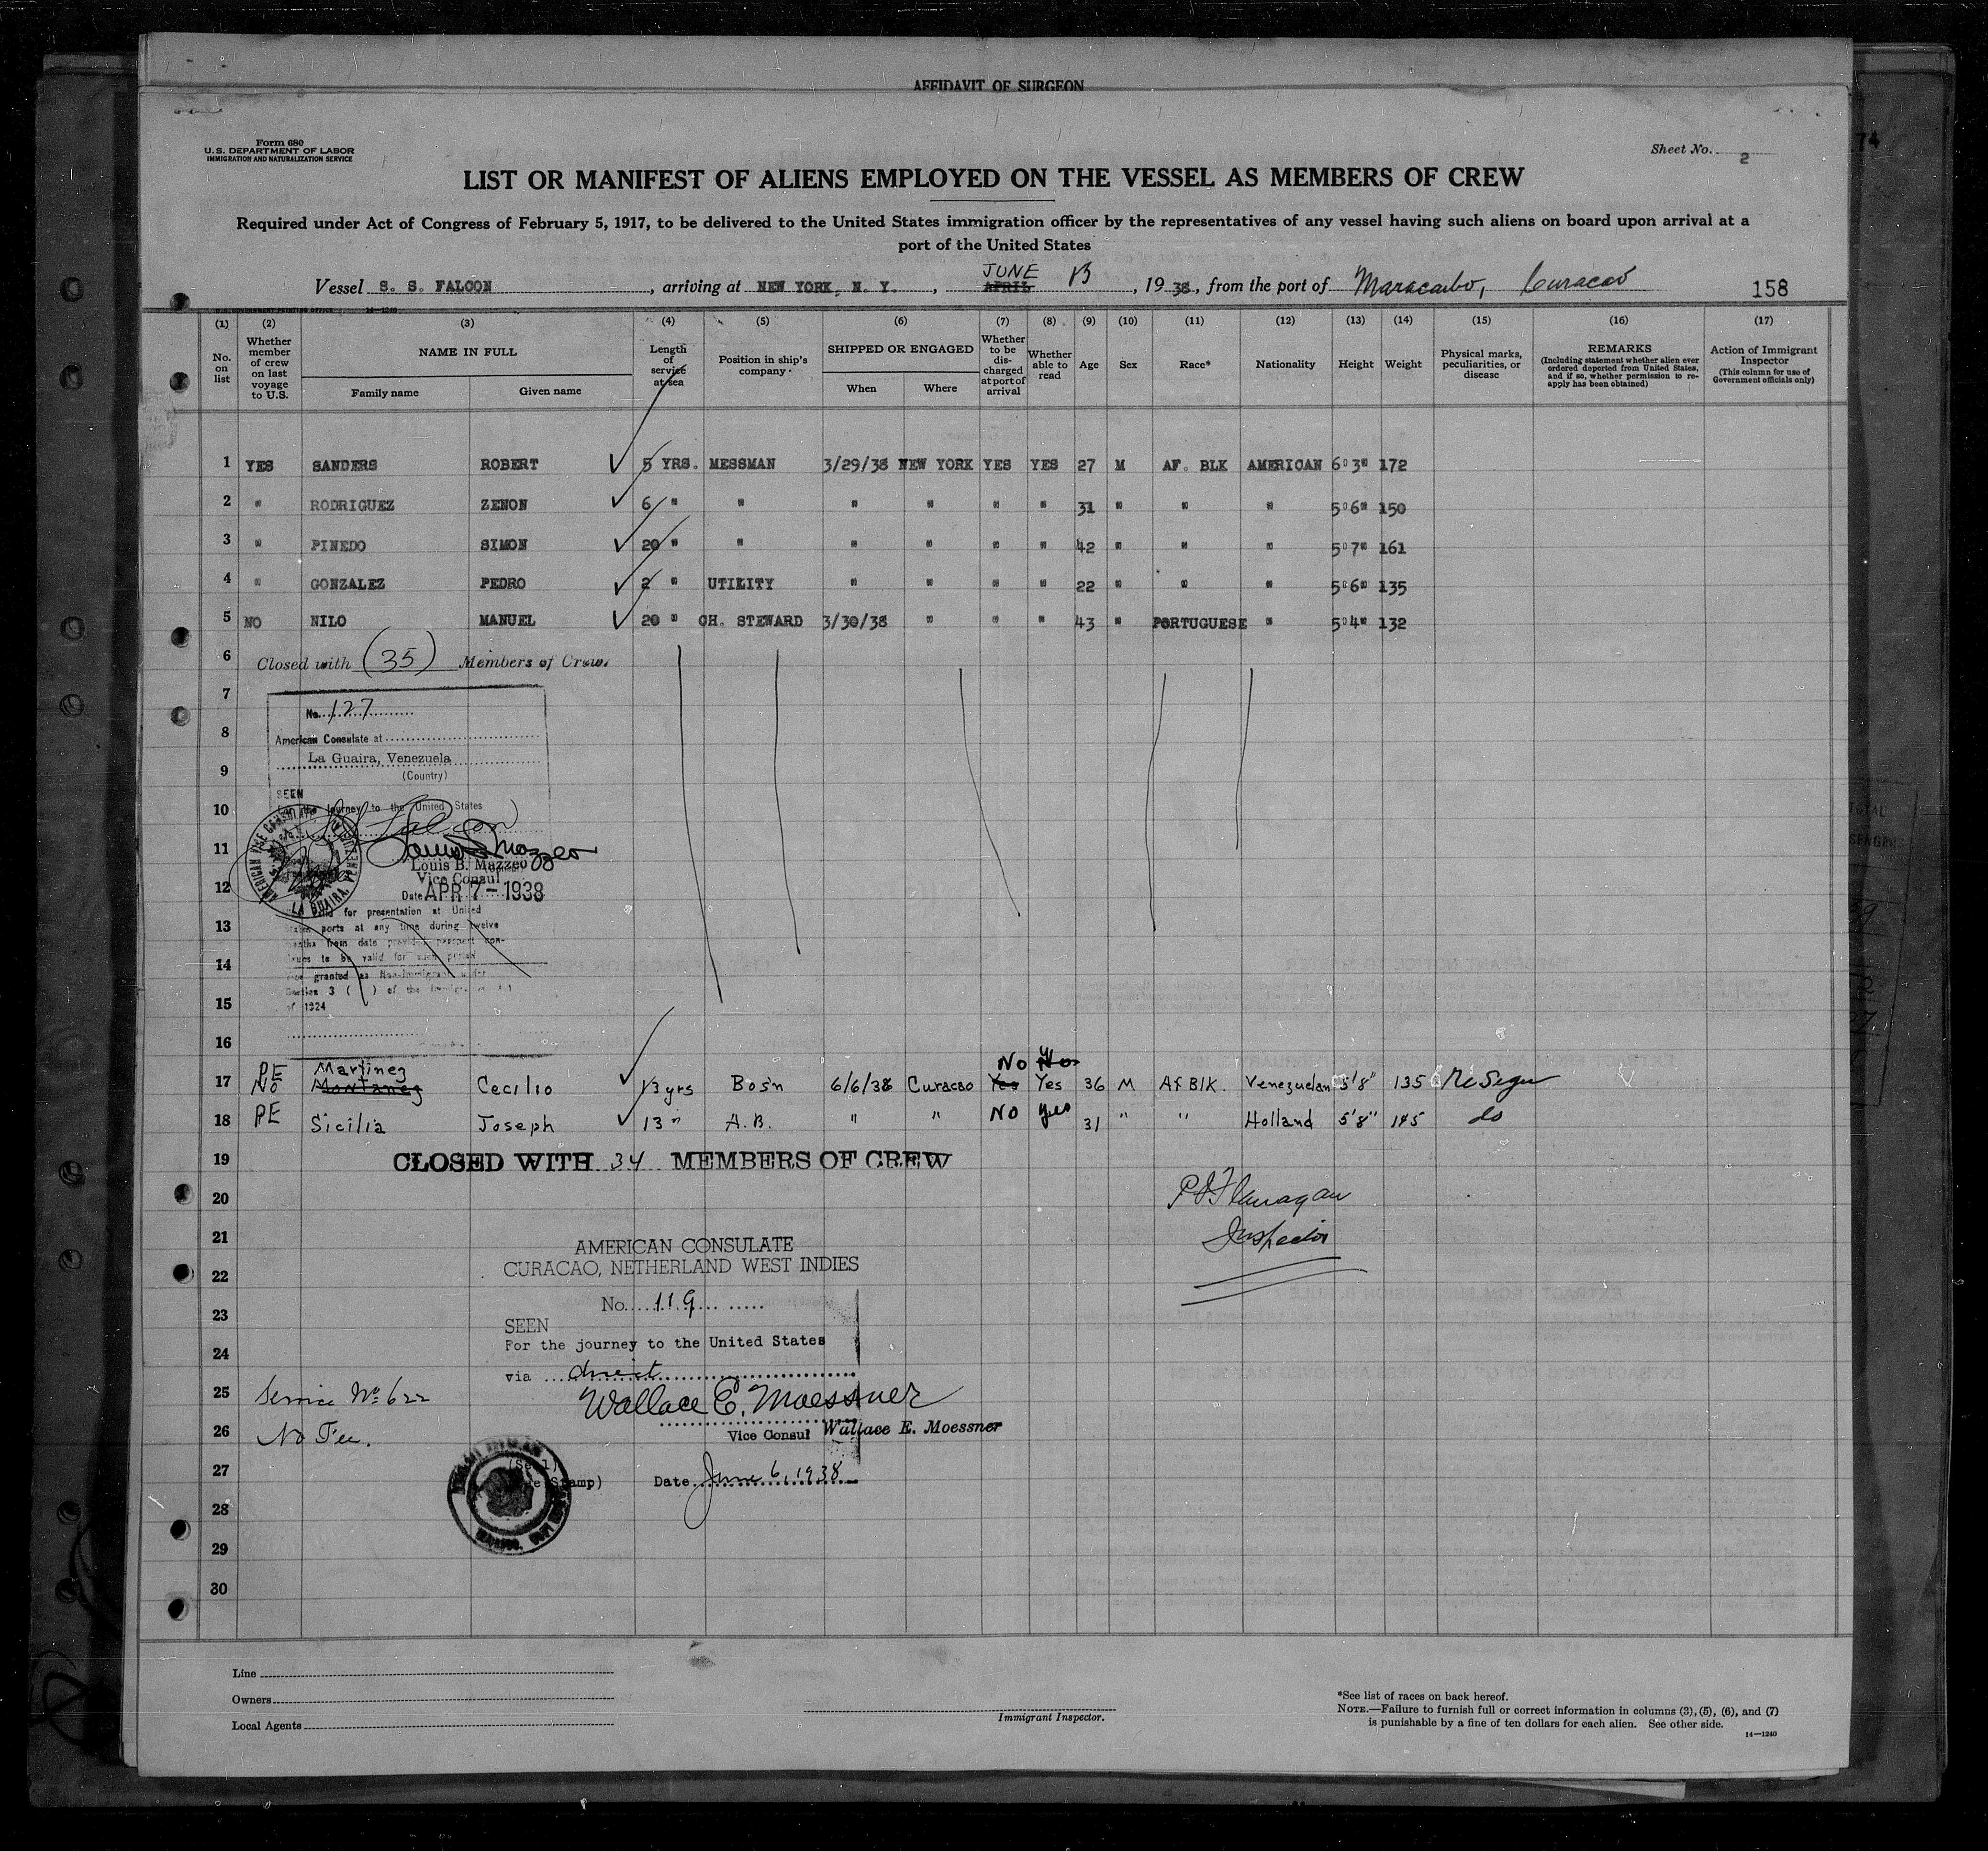 AFFIDAVIT OF SURGEON
Form 680
U.S. DEPARTMENT OF LABOR
IMMIGRATION AND NATURALIZATION SERVICE
Sheet No. 2
74
LIST OR MANIFEST OF ALIENS EMPLOYED ON THE VESSEL AS MEMBERS OF CREW
Required under Act of Congress of February 5, 1917, to be delivered to the United States immigration officer by the representatives of any vessel having such aliens on board upon arrival at a
port of the United States
JUNE
Vessel S. S. FALCON, arriving at NEW YORK, N. Y., APRIL 13, 1938, from the port of Maracaibo, Curacao 158
U.S. GOVERNMENT PRINTING OFFICE 14—1240
(1) (2) (3) (4) (5) (6) (7) (8) (9) (10) (11) (12) (13) (14) (15) (16) (17)
No. on list
Whether member of crew on last voyage to U.S.
NAME IN FULL
Family name Given name
Length of service at sea
Position in ship's company
SHIPPED OR ENGAGED
When Where
Whether to be discharged at port of arrival
Whether able to read
Age
Sex
Race*
Nationality
Height
Weight
Physical marks, peculiarities, or disease
REMARKS
(Including statement whether alien ever ordered deported from United States, and if so, whether permission to reapply has been obtained)
Action of Immigrant Inspector
(This column for use of Government officials only)
1 YES SANDERS ROBERT 5 YRS. MESSMAN 3/29/38 NEW YORK YES YES 27 M AF. BLK AMERICAN 6'3" 172
2 " RODRIGUEZ ZENON 6 " " " " " " 31 " " " 5'6" 150
3 " PINEDO SIMON 20 " " " " " " 42 " " " 5'7" 161
4 " GONZALEZ PEDRO 2 " UTILITY " " " " 22 " " " 5'6" 135
5 NO NILO MANUEL 20 " CH. STEWARD 3/30/38 " " " 43 " PORTUGUESE " 5'4" 132
6 Closed with (35) Members of Crew.
7
No. 127
8
American Consulate at
La Guaira, Venezuela
9
(Country)
SEEN
10
For the journey to the United States
SS Falcon
11
Louis B. Mazzeo
Louis B. Mazzeo
Vice Consul
12
Date APR 7 - 1938
AMERICAN VICE CONSULATE
LA GUAIRA, VENEZUELA
Valid for presentation at United
13
States ports at any time during twelve
months from date provided passport con-
tinues to be valid for such period
14
Visa granted as Non-Immigrant under
Section 3 ( ) of the Immigration Act
15
of 1924
16
PE Martinez No Yes
17 No Montanez Cecilio 13 yrs Bos'n 6/6/38 Curacao Yes Yes 36 M Af Blk. Venezuelan 5'8" 135
18 PE Sicilia Joseph 13 " A.B. " " No yes 31 " " Holland 5'8" 145 do
19 CLOSED WITH 34 MEMBERS OF CREW
20 Flanagan
21 Inspector
AMERICAN CONSULATE
22 CURACAO, NETHERLAND WEST INDIES
23 No. 119
SEEN
24 For the journey to the United States
via direct
25 Service No. 622 Wallace E. Moessner
26 No Fee. Vice Consul Wallace E. Moessner
(Seal)
27 Date June 6, 1938
28
29
30
Line
Owners
Local Agents
Immigrant Inspector.
*See list of races on back hereof.
NOTE.—Failure to furnish full or correct information in columns (3), (5), (6), and (7)
is punishable by a fine of ten dollars for each alien. See other side.
14—1240